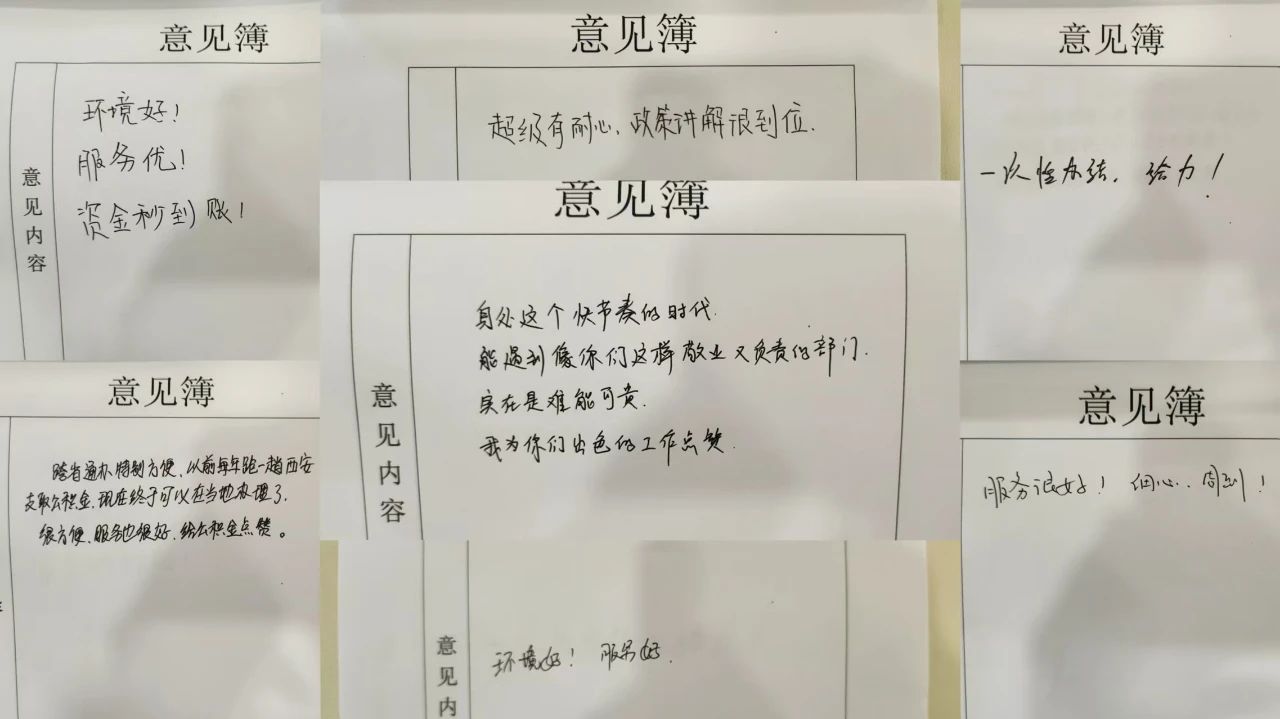 意见簿
意见内容
环境好！
服务优！
资金秒到账！
意见簿
超级有耐心、政策讲解很到位.
意见簿
一次性办结，给力！
意见簿
意见内容
身处这个快节奏的时代.
能遇到像你们这样敬业又负责的部门.
实在是难能可贵.
我为你们出色的工作点赞.
意见簿
跨省通办特别方便、以前每年跑一趟西安
支取公积金,现在终于可以在当地办理了.
很方便、服务也很好、给公积金点赞。
意见簿
服务很好！细心、周到！
意见内
环境好！服务好.